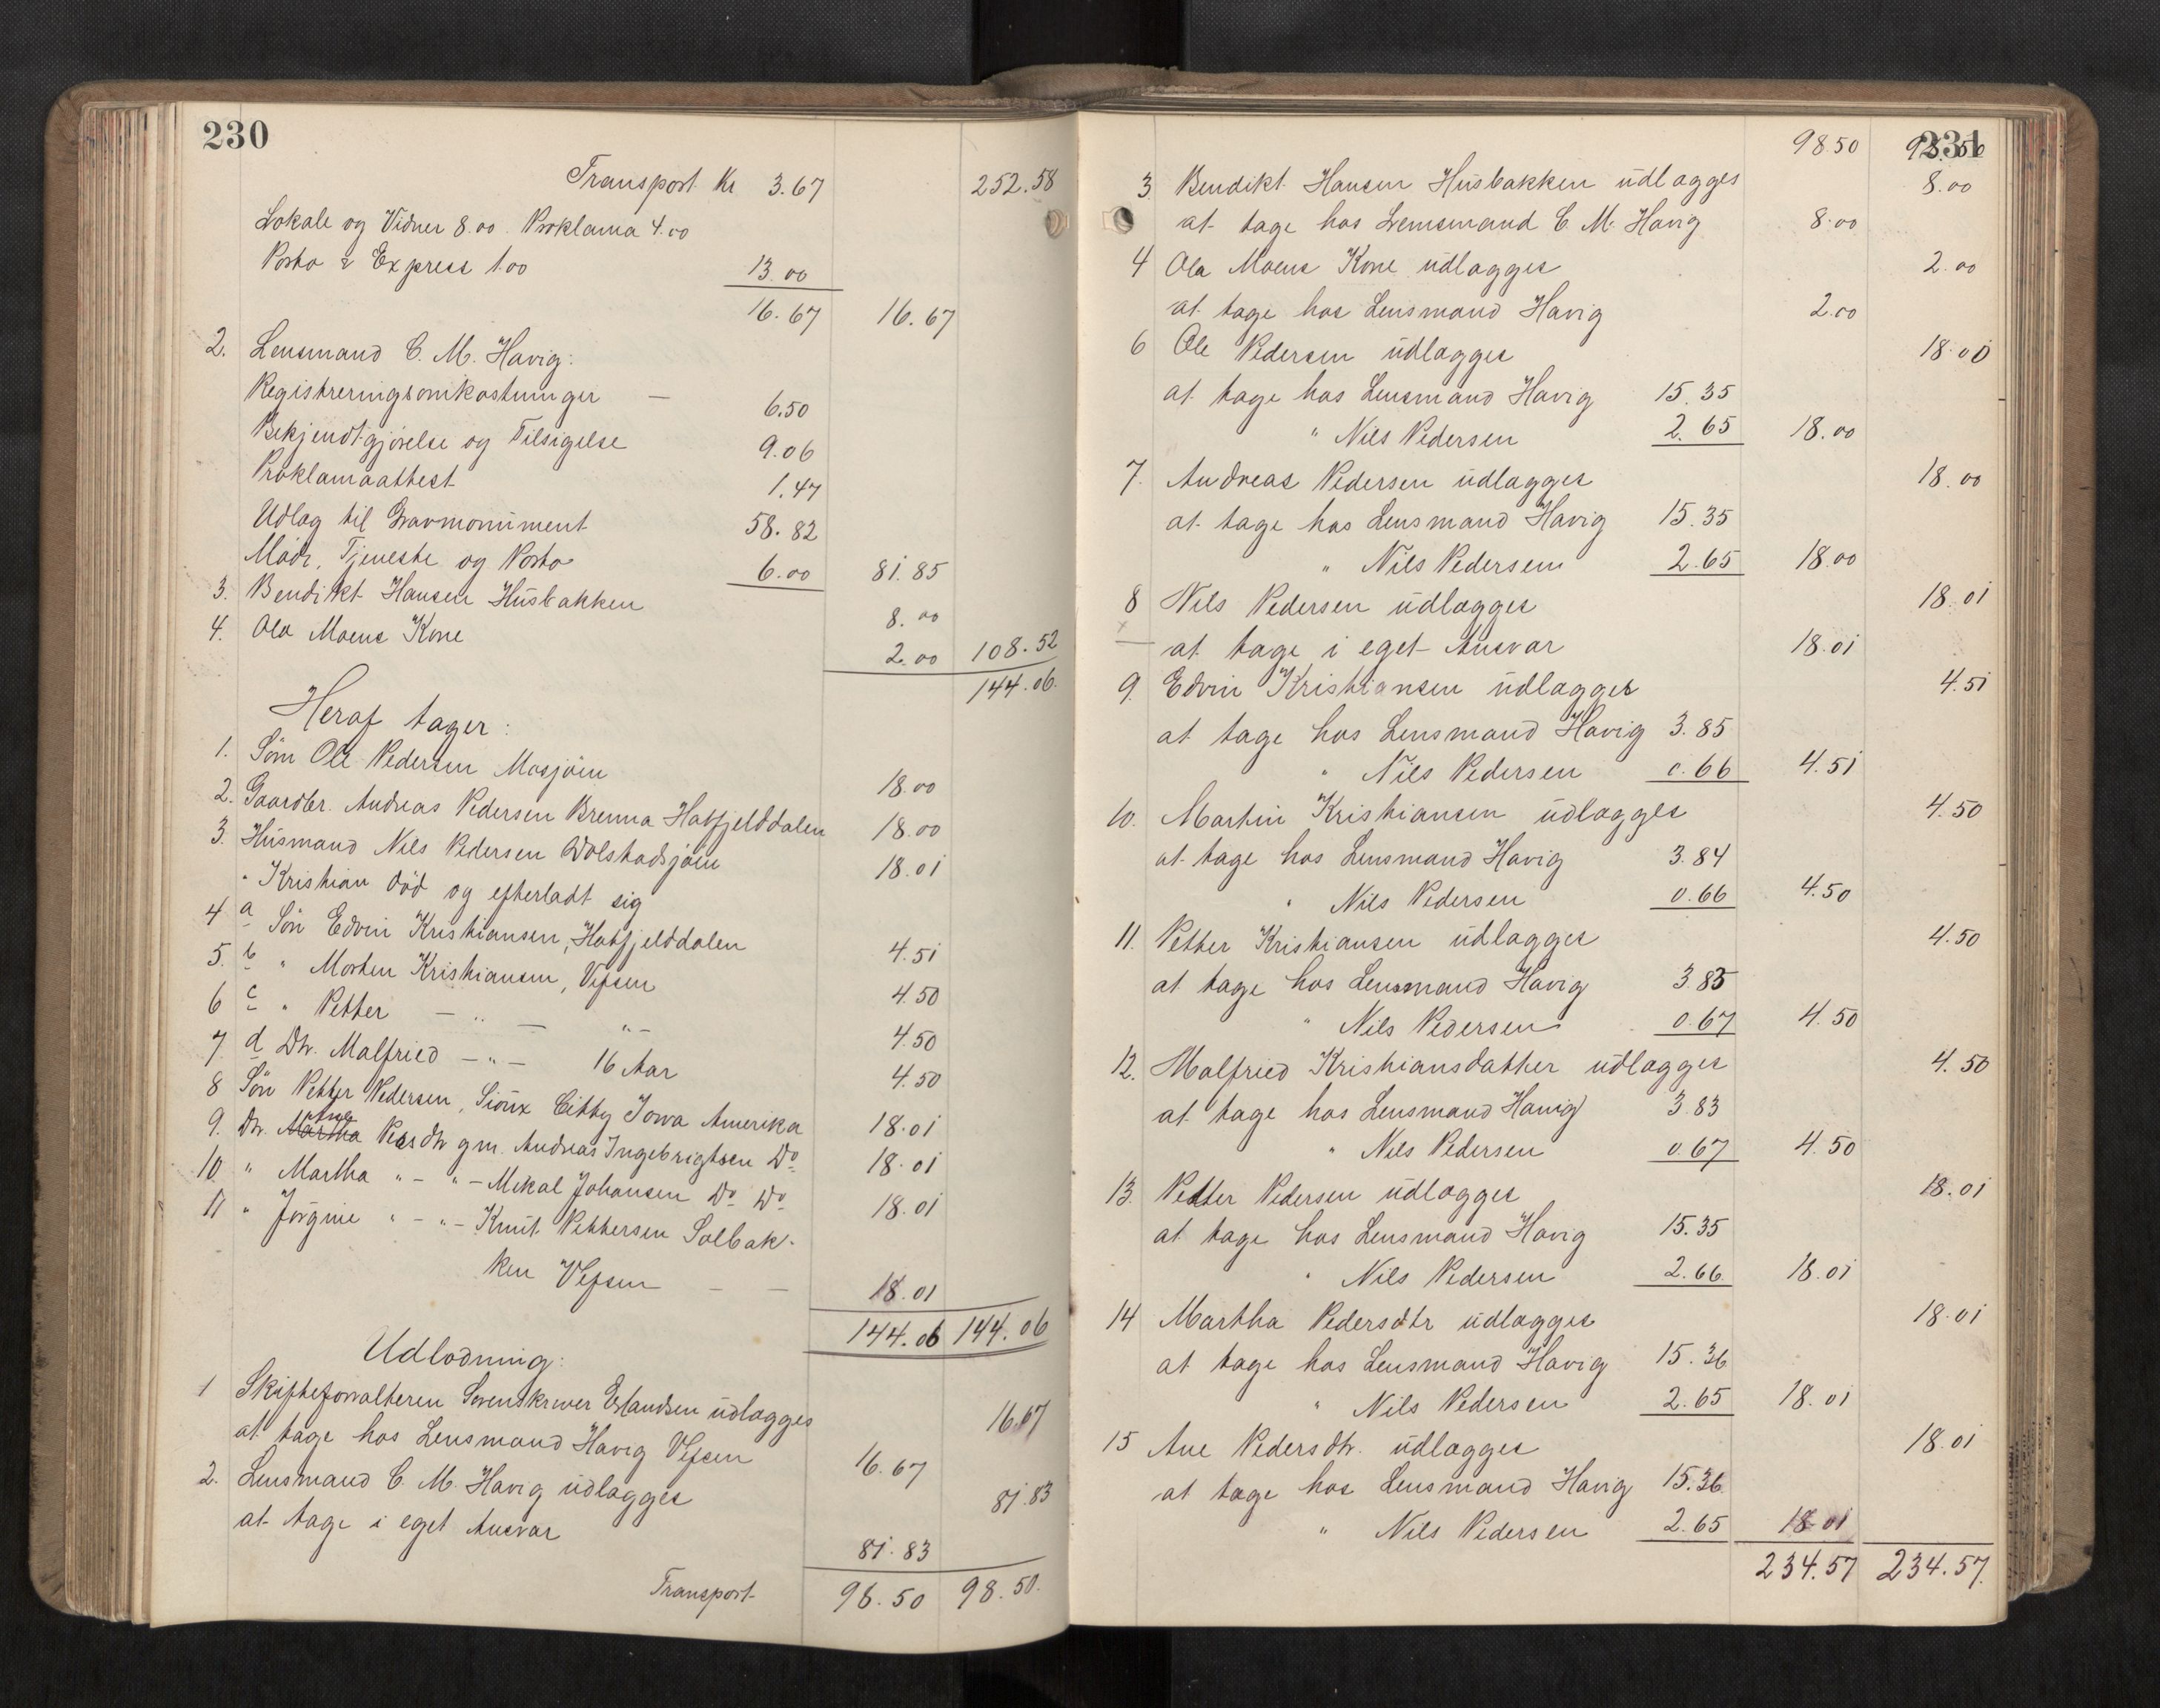 230
Transport Kr 3.67 252.58
Lokale og Vidner 8.00 Proklama 4.00
Porto & Express 1.00 13.00
16.67 16.67
2. Lensmand C. M. Havig:
Registreringsomkostninger — 6.50
Bekjendtgjørelse og Tilsigelse 9.06
Proklamaattest 1.47
Udlæg til Gravmonument 58.82
Mødr, Tjeneste og Porto 6.00 81.85
3. Bendikt Hansen Husbakken 8.00
4. Ola Moens Kone 2.00 108.52
144.06.
Heraf tager:
1. Søm Ole Pedersen Mosjøen 18.00
2. Gaardbr. Andreas Pedersen Brenna Hatfjelddalen 18.00
3. Husmand Nils Pedersen Dolstadsjøen 18.01
" Kristian død og efterladt sig
4 a Søn Edvin Kristiansen, Hatfjelddalen 4.51
5. b " Morten Kristiansen, Vefsen 4.50
6 c " Petter — " — " — 4.50
7 d Dtr. Malfried — " — 16 Aar 4.50
8 Søn Petter Pedersen, Sioux Citty Jowa Amerika 18.01
9. Dtr. Martha Ane Pedrsdtr gm. Andreas Ingebrigtsen Do 18.01
10 " Martha " — " — Mekal Johansen Do Do 18.01
11 " Jørgine " — " — Knut Pettersen Solbak-
ken Vefsen — — 18.01
144.06 144.06
Udlodning:
1 Skifteforvalteren Sorenskriver Erlandsen udlægges 16.67
at tage hos Lensmand Havig Vefsen 16.67
2. Lensmand C. M. Havig udlægges 81.83
at tage i eget Ansvar 81.83
Transport 98.50 98.50.
231
98.50 98.50
3. Bendikt Hansen Husbakken udlægges 8.00
at tage hos Lensmand C. M. Havig 8.00
4 Ola Moens Kone udlægges 2.00
at tage hos Lensmand Havig 2.00
6 Ole Pedersen udlægges 18.00
at tage hos Lensmand Havig 15.35
" Nils Pedersen 2.65 18.00
7. Andreas Pedersen udlægges 18.00
at tage hos Lensmand Havig 15.35
" Nils Pedersen 2.65 18.00
8 Nils Pedersen udlægges 18.01
at tage i eget Ansvar 18.01
9. Edvin Kristiansen udlægges 4.51
at tage hos Lensmand Havig 3.85
" Nils Pedersen 0.66 4.51
10. Martin Kristiansen udlægges 4.50
at tage hos Lensmand Havig 3.84
" Nils Pedersen 0.66 4.50
11. Petter Kristiansen udlægges 4.50
at tage hos Lensmand Havig 3.83
" Nils Pedersen 0.67 4.50
12. Malfried Kristiansdatter udlægges 4.50
at tage hos Lensmand Havig 3.83
" Nils Pedersen 0.67 4.50
13. Petter Pedersen udlægges 18.01
at tage hos Lensmand Havig 15.35
" Nils Pedersen 2.66. 18.01
14 Martha Pedersdtr udlægges 18.01
at tage hos Lensmand Havig 15.36
" Nils Pedersen 2.65 18.01
15 Ane Pedersdtr. udlægges 18.01
at tage hos Lensmand Havig 15.36
" Nils Pedersen 2.65 18.01
234.57 234.57.